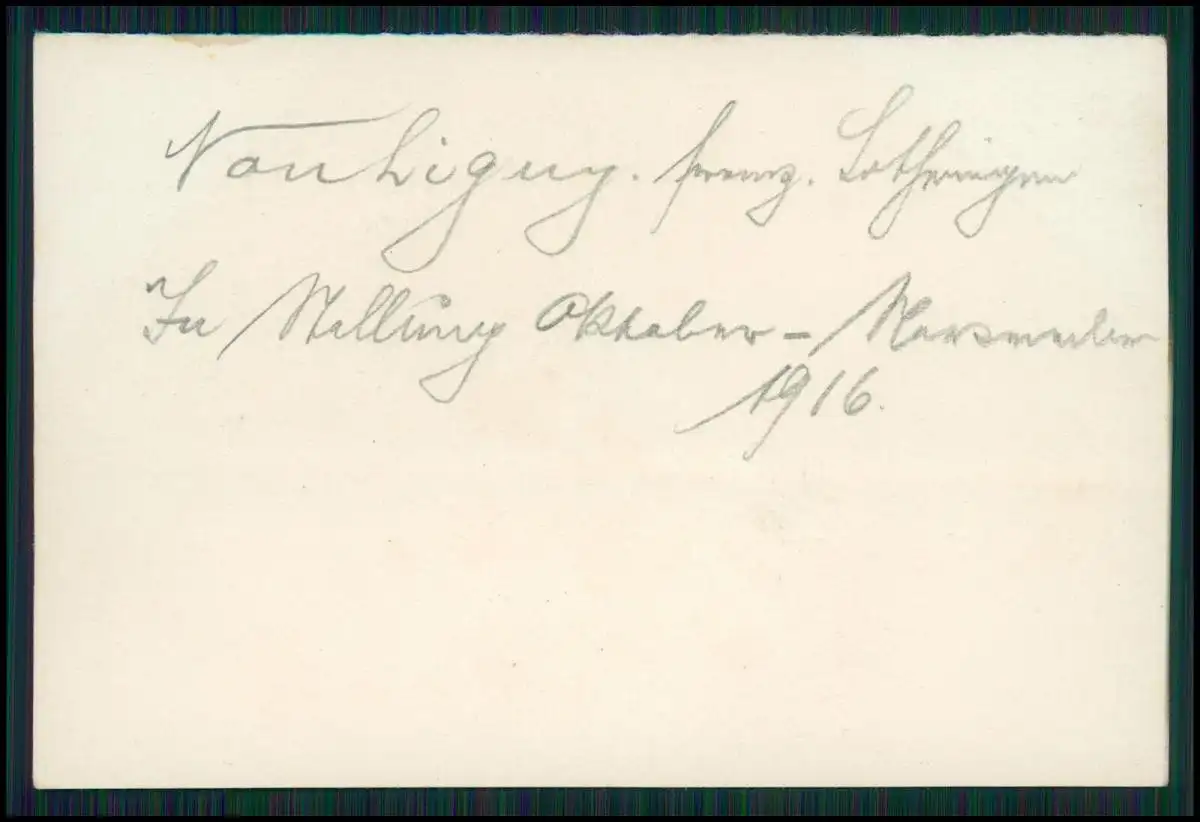 Nouhigny. franz. Lothringen
In Stellung Oktober - November
1916.